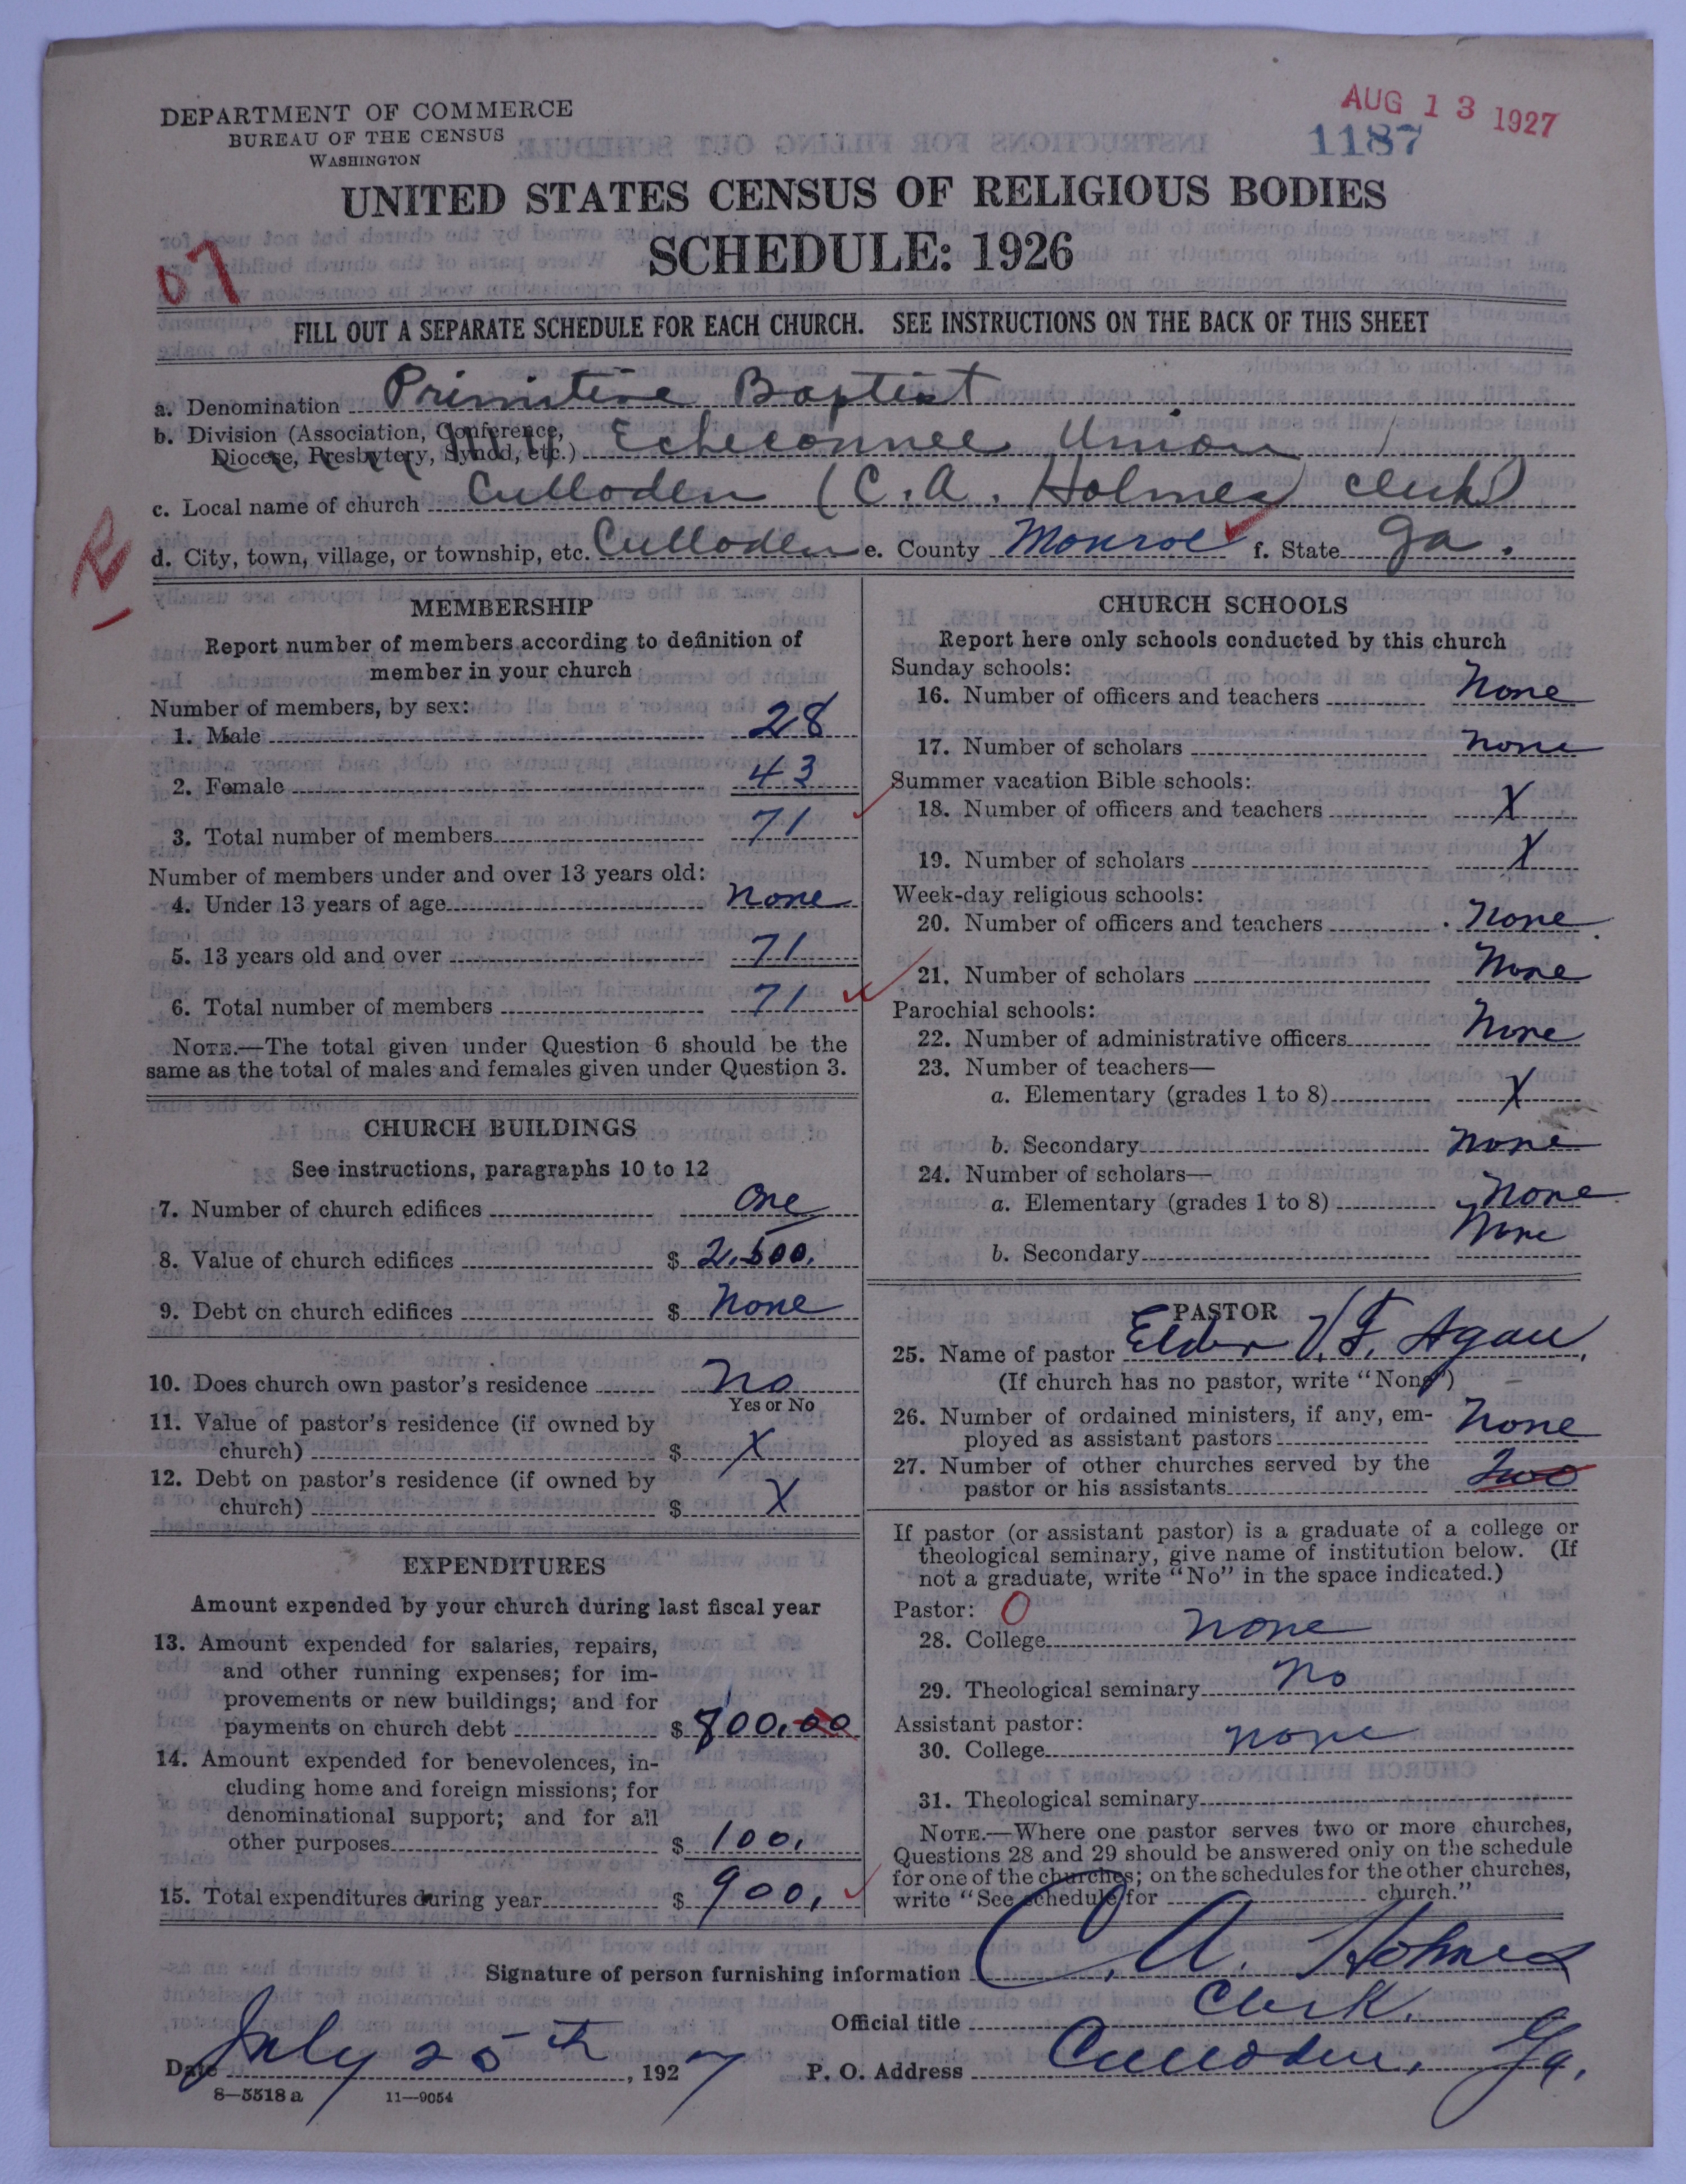 DEPARTMENT OF COMMERCE
BUREAU OF THE CENSUS
WASHINGTON
AUG 13 1927
1187
UNITED STATES CENSUS OF RELIGIOUS BODIES
SCHEDULE: 1926
07
FILL OUT A SEPARATE SCHEDULE FOR EACH CHURCH. SEE INSTRUCTIONS ON THE BACK OF THIS SHEET
a. Denomination Primitive Baptist
b. Division (Association, Conference, Diocese, Presbytery, Synod, etc.) Echeconnee Union
c. Local name of church Culloden (C. A. Holmes clerk)
R
d. City, town, village, or township, etc. Culloden e. County Monroe f. State Ga.
MEMBERSHIP
Report number of members according to definition of
member in your church
Number of members, by sex:
1. Male 28
2. Female 43
3. Total number of members 71
Number of members under and over 13 years old:
4. Under 13 years of age none
5. 13 years old and over 71
6. Total number of members 71
NOTE.—The total given under Question 6 should be the
same as the total of males and females given under Question 3.
CHURCH BUILDINGS
See instructions, paragraphs 10 to 12
7. Number of church edifices one
8. Value of church edifices $ 2.500.
9. Debt on church edifices $ None
10. Does church own pastor's residence no
Yes or No
11. Value of pastor's residence (if owned by
church) $ X
12. Debt on pastor's residence (if owned by
church) $ X
EXPENDITURES
Amount expended by your church during last fiscal year
13. Amount expended for salaries, repairs,
and other running expenses; for im-
provements or new buildings; and for
payments on church debt $ 800.00
14. Amount expended for benevolences, in-
cluding home and foreign missions; for
denominational support; and for all
other purposes $ 100.
15. Total expenditures during year $ 900.
CHURCH SCHOOLS
Report here only schools conducted by this church
Sunday schools:
16. Number of officers and teachers None
17. Number of scholars none
Summer vacation Bible schools:
18. Number of officers and teachers X
19. Number of scholars X
Week-day religious schools:
20. Number of officers and teachers None
21. Number of scholars None
Parochial schools:
22. Number of administrative officers None
23. Number of teachers—
a. Elementary (grades 1 to 8) X
b. Secondary None
24. Number of scholars—
a. Elementary (grades 1 to 8) None
b. Secondary None
PASTOR
25. Name of pastor Elder V. F. Agan
(If church has no pastor, write "None")
26. Number of ordained ministers, if any, em-
ployed as assistant pastors None
27. Number of other churches served by the
pastor or his assistants Two
If pastor (or assistant pastor) is a graduate of a college or
theological seminary, give name of institution below. (If
not a graduate, write "No" in the space indicated.)
Pastor: O
28. College none
29. Theological seminary No
Assistant pastor:
30. College none
31. Theological seminary
NOTE.—Where one pastor serves two or more churches,
Questions 28 and 29 should be answered only on the schedule
for one of the churches; on the schedules for the other churches,
write "See schedule for church."
Signature of person furnishing information C. A. Holmes
Official title Clerk.
Date July 25th, 1927 P. O. Address Culloden, Ga.
8—5518 a 11—9054